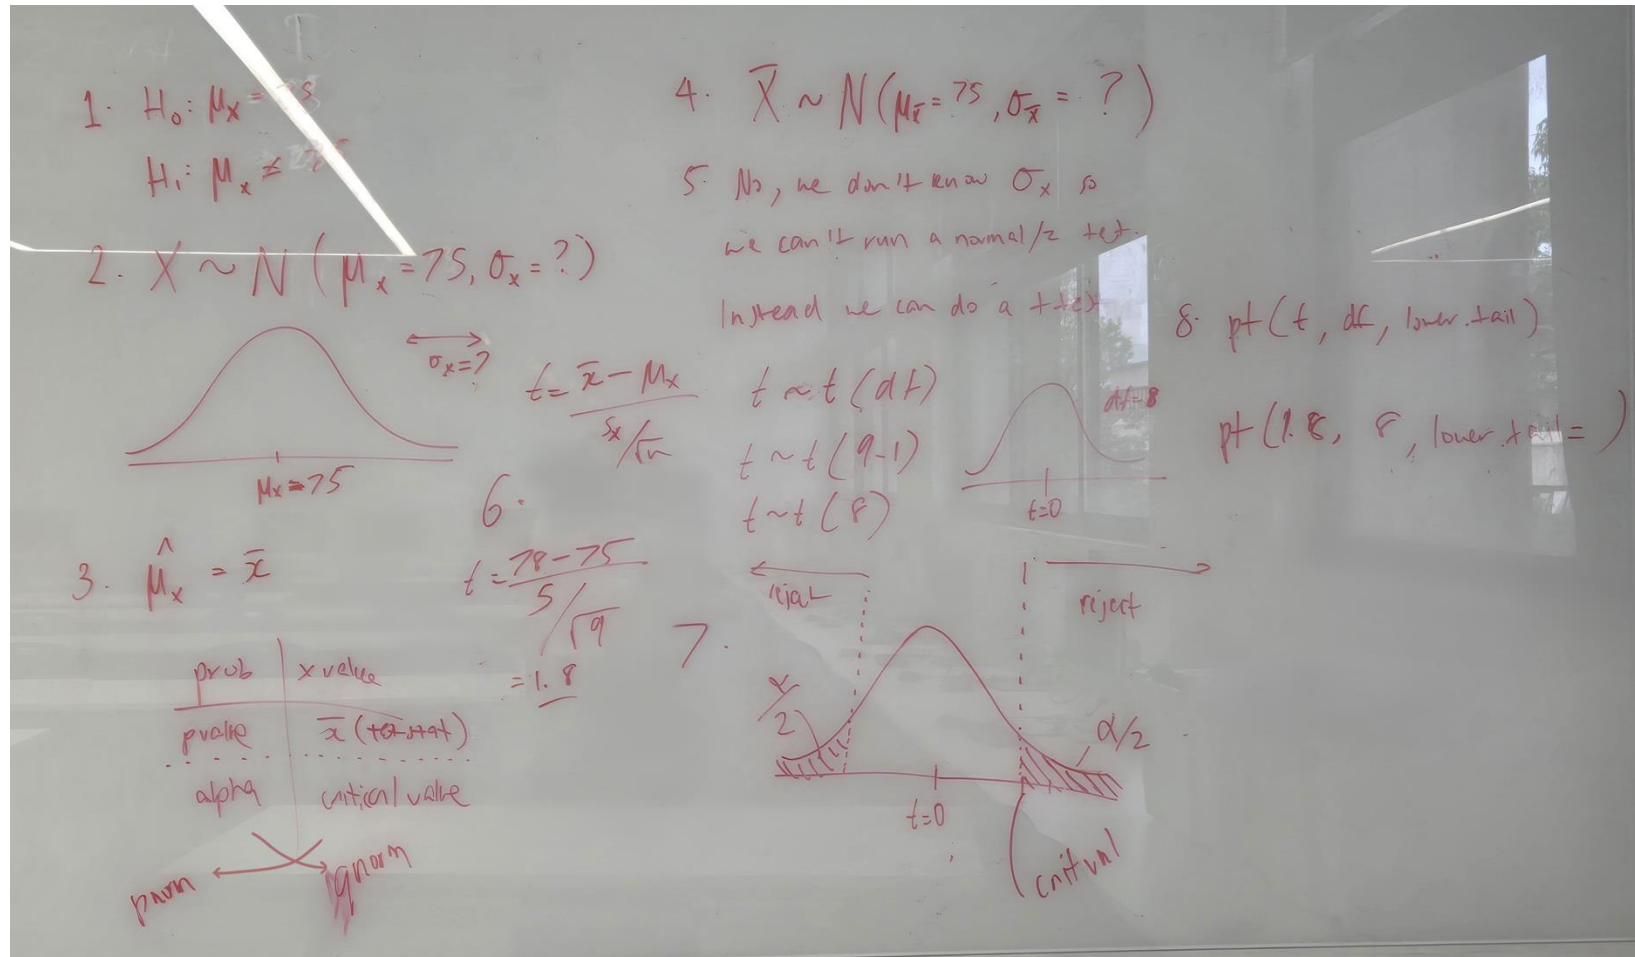 1. H₀: μₓ = 75
H₁: μₓ ≠ 75
2. X ~ N ( μₓ = 75, σₓ = ? )
σₓ=?
μₓ=75
3. μ̂ₓ = x̄
prob x value
pvalue x̄ (test stat)
alpha critical value
pnorm qnorm
t = x̄ - μₓ / sₓ/√n
6.
t = 78-75 / 5/√9
= 1.8
4. X̄ ~ N ( μx̄ = 75, σx̄ = ? )
5. No, we don't know σₓ so
we can't run a normal/z test.
Instead we can do a t test
t ~ t (df)
t ~ t (9-1)
t ~ t (8)
df=8
t=0
7.
reject reject
α/2 α/2
t=0
crit val
8. pt(t, df, lower.tail)
pt(1.8, 8, lower.tail= )